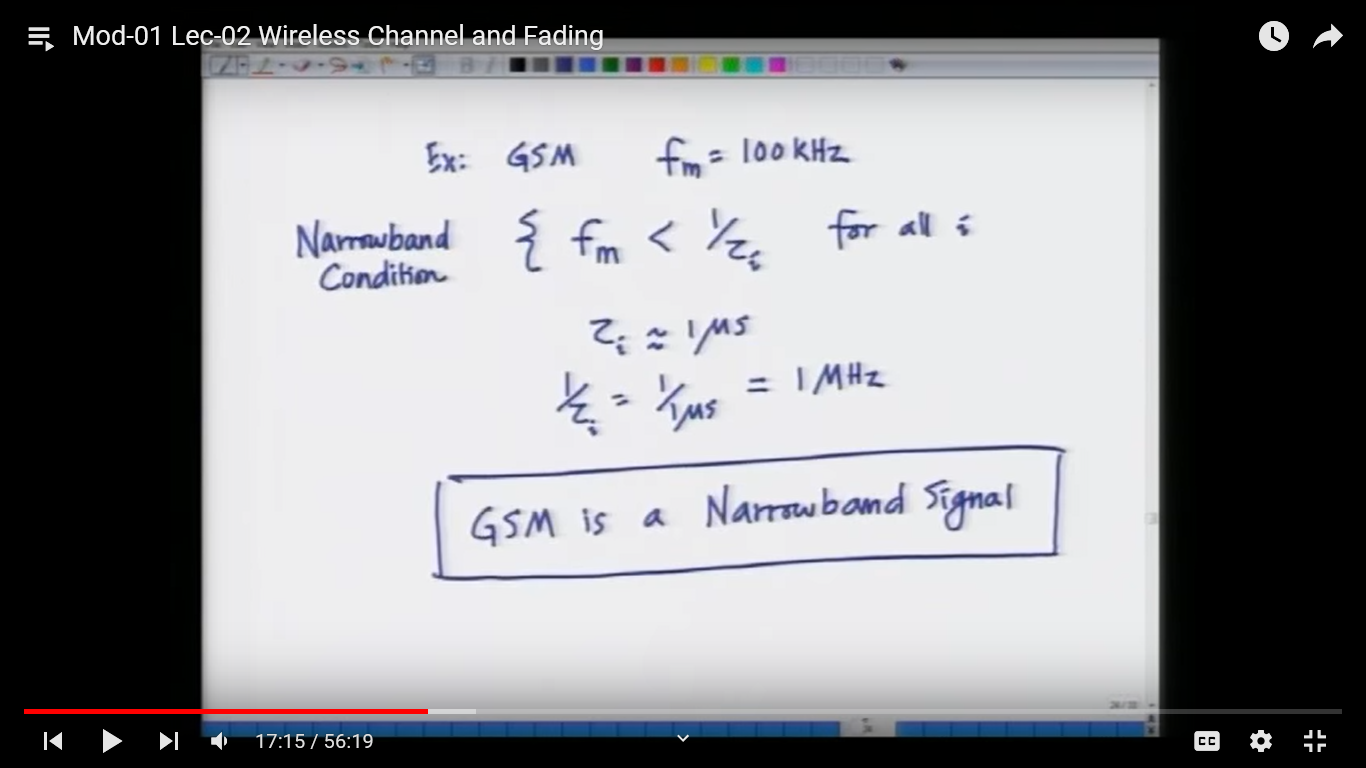 Mod-01 Lec-02 Wireless Channel and Fading
Ex: GSM fm = 100 kHz
Narrowband Condition { fm < 1/τi for all i
τi ≈ 1 μs
1/τi = 1/1μs = 1 MHz
GSM is a Narrowband Signal
17:15 / 56:19
CC